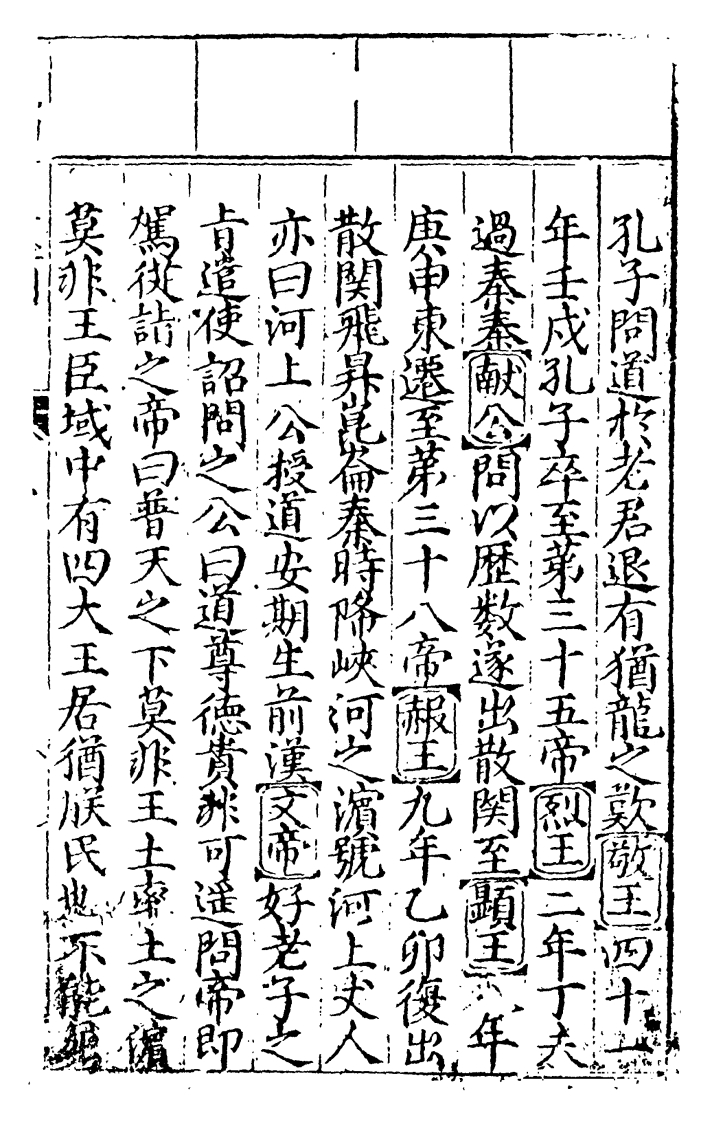 孔子問道於老君退有猶龍之歎敬王四十一
年壬戌孔子卒至第三十五帝烈王二年丁夫
過秦秦献公問以歴数遂出散関至顯王年
庚申東遷至第三十八帝赧王九年乙卯復出
散関飛昇崑崙秦時降峽河之濵號河上丈人
亦曰河上公授道安期生前漢文帝好老子之
㫖遣使詔問之公曰道尊徳貴非可遥問帝即
駕從詣之帝曰普天之下莫非王土率土之濵
莫非王臣域中有四大王居猶朕民也不能